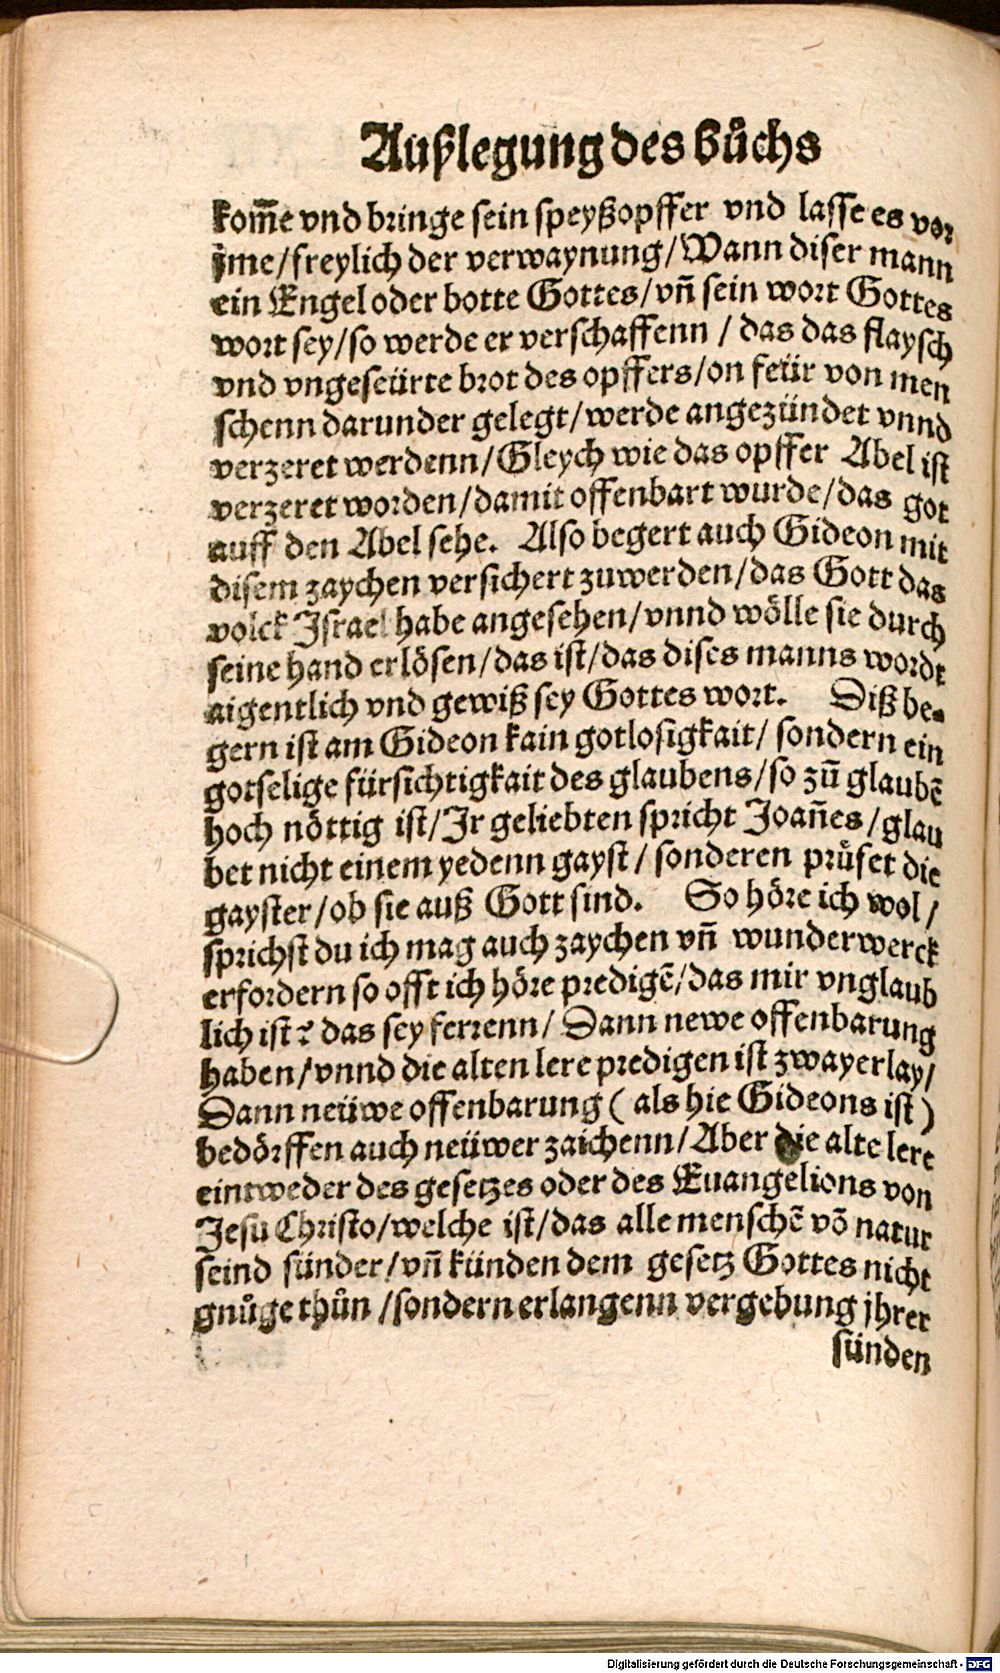 Außlegung des bůchs
kom̃e vnd bringe sein speyßopffer vnd lasse es vor
jme/freylich der verwaynung/Wann diser mann
ein Engel oder botte Gottes/vñ sein wort Gottes
wort sey/so werde er verschaffenn / das das flaysch
vnd vngeseürte brot des opffers/on feür von men
schenn darunder gelegt/werde angezündet vnnd
verzeret werdenn/Gleych wie das opffer Abel ist
verzeret worden/damit offenbart wurde/das got
auff den Abel sehe. Also begert auch Gideon mit
disem zaychen versichert zuwerden/das Gott das
volck Israel habe angesehen/vnnd wölle sie durch
seine hand erlösen/das ist/das dises manns wordt
aigentlich vnd gewiß sey Gottes wort. Diß be-
gern ist am Gideon kain gotlosigkait/ sondern ein
gotselige fürsichtigkait des glaubens/so zů glaubẽ
hoch nöttig ist/Ir geliebten spricht Joañes/glau
bet nicht einem yedenn gayst/ sonderen prüfet die
gayster/ob sie auß Gott sind. So höre ich wol/
sprichst du ich mag auch zaychen vñ wunderwerck
erfordern so offt ich höre predigẽ/das mir vnglaub
lich ist? das sey ferrenn/ Dann newe offenbarung
haben/vnnd die alten lere predigen ist zwayerlay/
Dann neüwe offenbarung ( als hie Gideons ist )
bedörffen auch neüwer zaichenn/Aber die alte lere
eintweder des gesetzes oder des Euangelions von
Jesu Christo/welche ist/das alle menschẽ võ natur
seind sünder/vñ künden dem gesetz Gottes nicht
gnůge thůn /sondern erlangenn vergebung jhrer
sünden
Digitalisierung gefördert durch die Deutsche Forschungsgemeinschaft - DFG